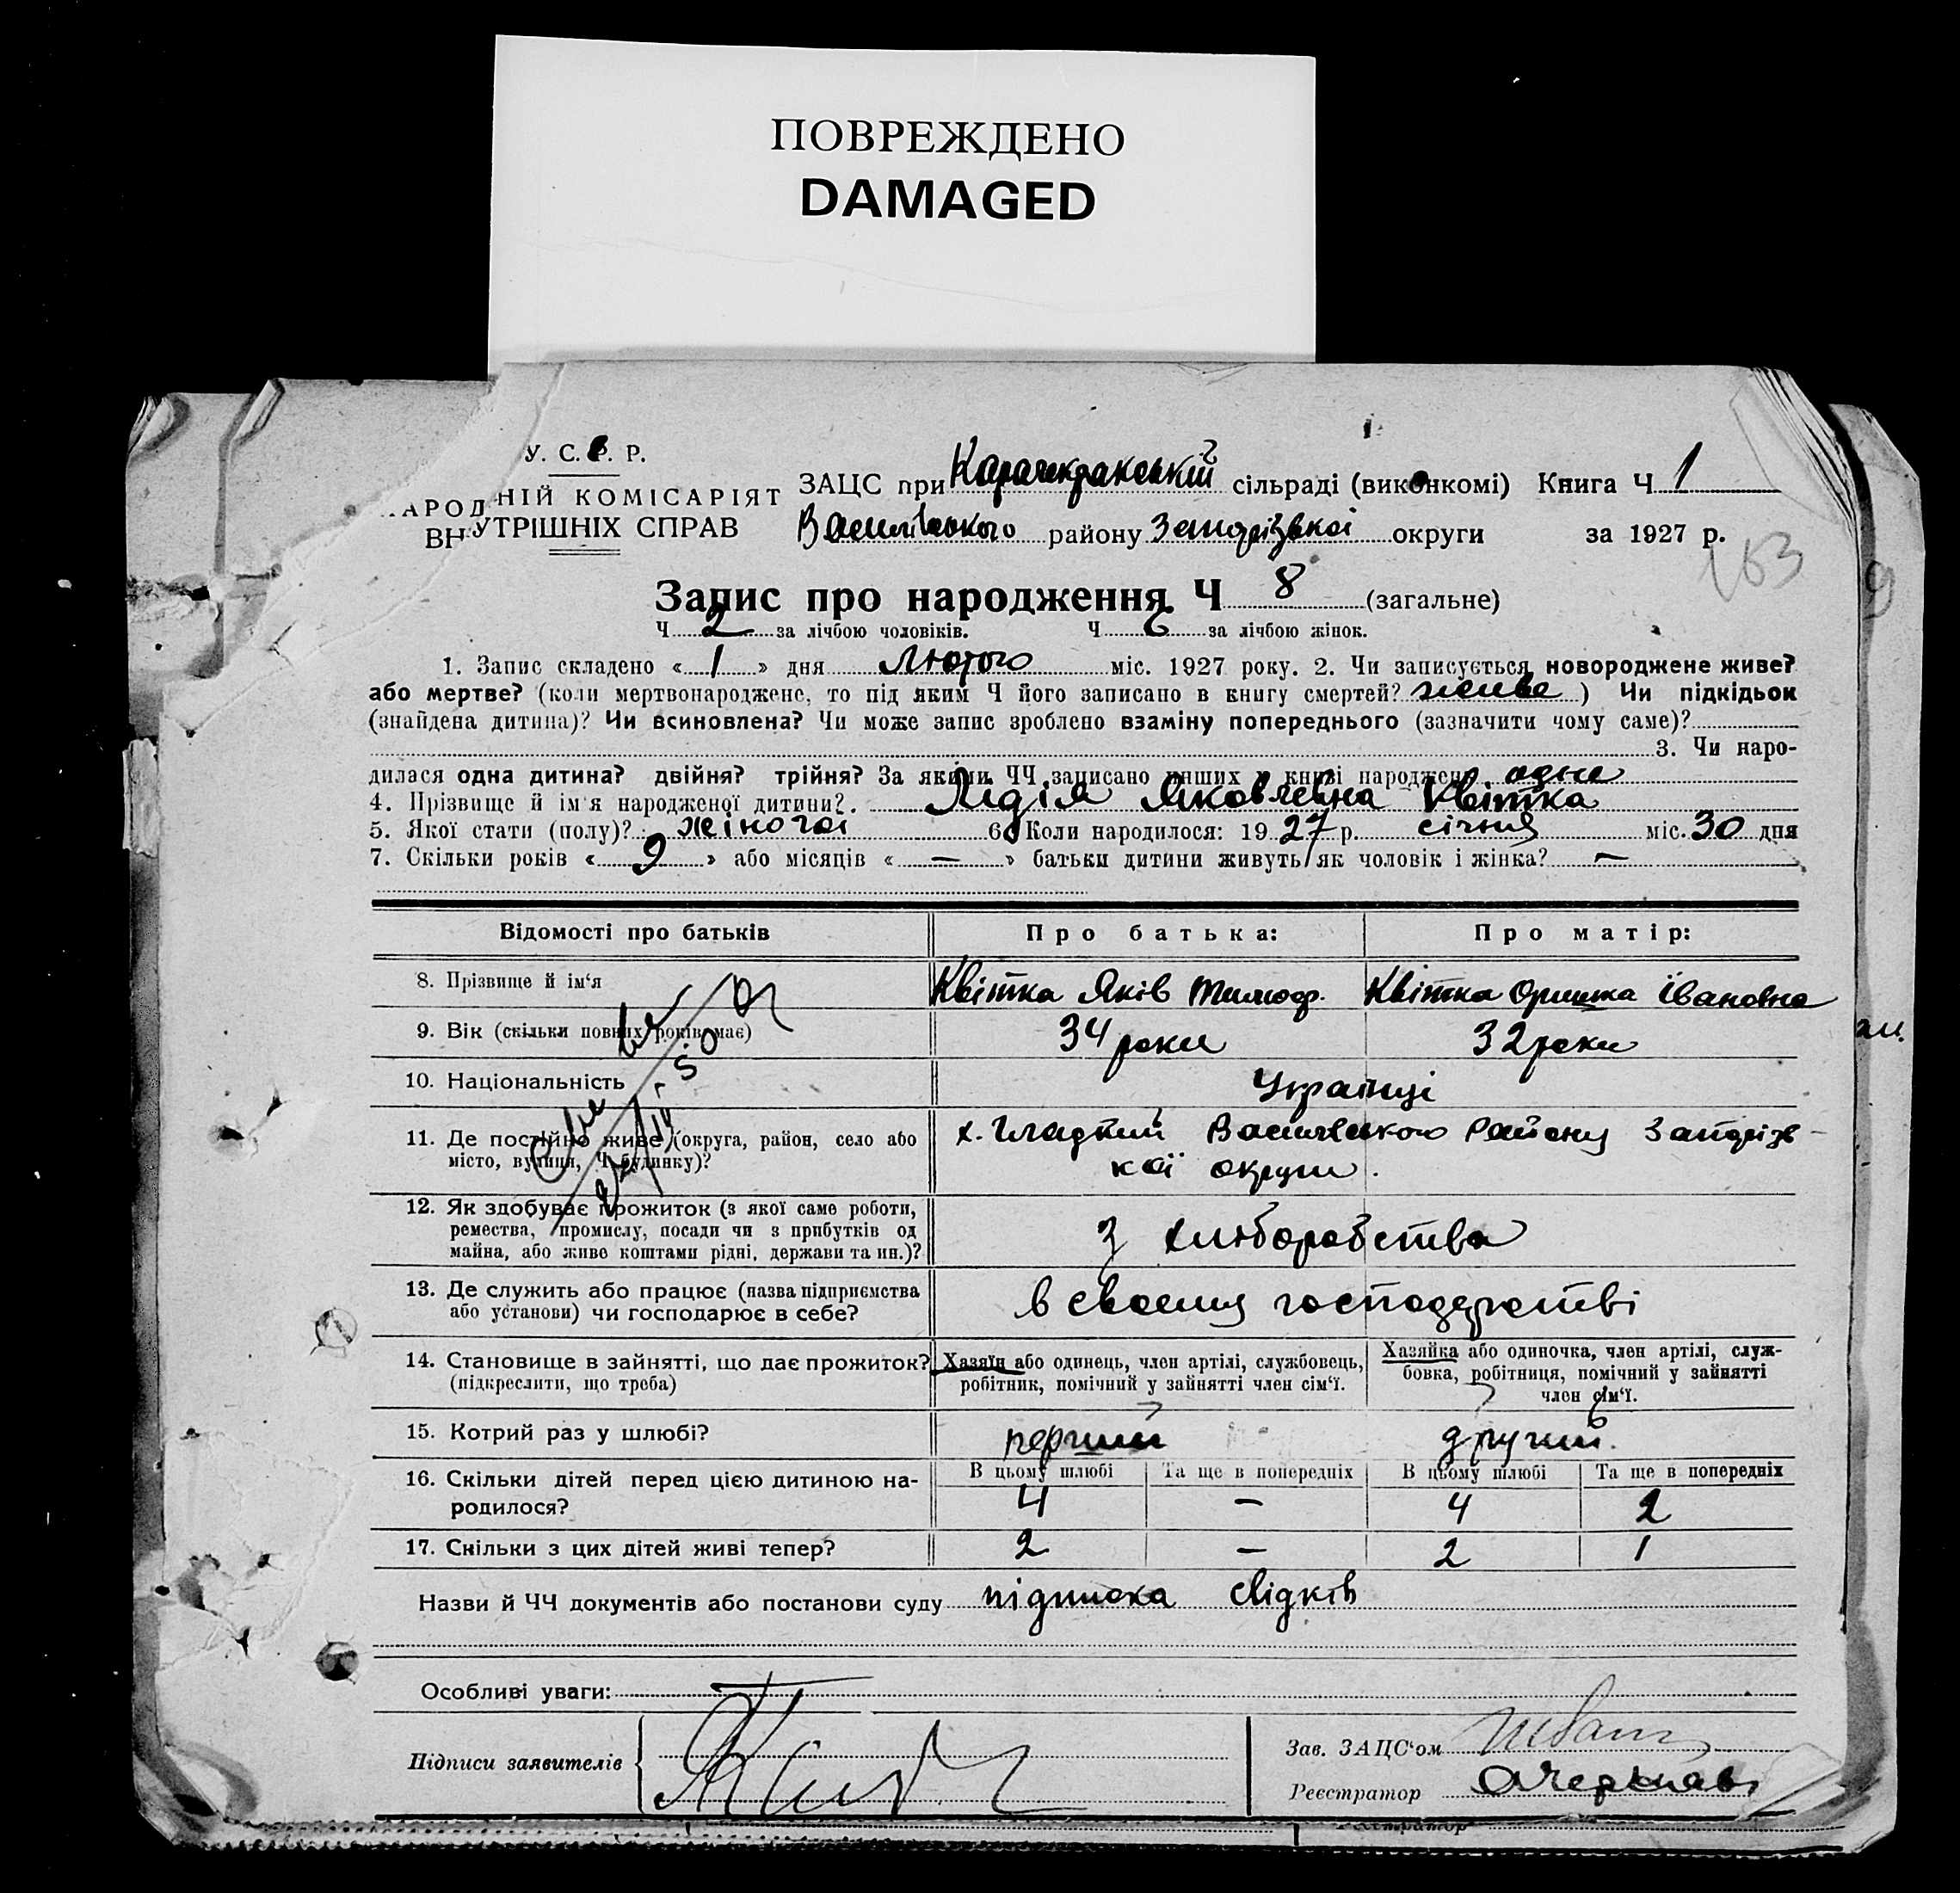 ПОВРЕЖДЕНО
DAMAGED
У. С. Р. Р.
НАРОДНІЙ КОМІСАРІЯТ
ВНУТРІШНІХ СПРАВ
ЗАЦС при Карачекракській сільраді (виконкомі) Книга Ч 1
Василівського району Запорізької округи за 1927 р.
163
Запис про народження Ч 8 (загальне)
Ч 2 за лічбою чоловіків. Ч 6 за лічбою жінок.
1. Запис складено « 1 » дня Лютого міс. 1927 року. 2. Чи записується новороджене живе?
або мертве? (коли мертвонароджене, то під яким Ч його записано в книгу смертей? живе ) Чи підкідьок
(знайдена дитина)? Чи всиновлена? Чи може запис зроблено взаміну попереднього (зазначити чому саме)?
3. Чи наро-
дилася одна дитина? двійня? трійня? За якими ЧЧ записано инших у книзі народжень одне
4. Прізвище й ім'я народженої дитини? Лідія Яковлевна Квітка
5. Якої стати (полу)? жіночої 6. Коли народилося: 1927 р. січня міс. 30 дня
7. Скільки років « 9 » або місяців « — » батьки дитини живуть як чоловік і жінка? —
Відомості про батьків Про батька: Про матір:
8. Прізвище й ім'я Квітка Яків Тимоф. Квітка Оришка Івановна
9. Вік (скільки повних років має) 34 роки 32 роки
10. Національність Українці
11. Де постійно живе (округа, район, село або х. Гладкий Василівського Району Запорізь-
місто, вулиця, Ч будинку)? кої округи.
12. Як здобуває прожиток (з якої саме роботи,
ремества, промислу, посади чи з прибутків од З хліборобства
майна, або живе коштами рідні, держави та ин.)?
13. Де служить або працює (назва підприємства в своему господарстві
або установи) чи господарює в себе?
14. Становище в зайнятті, що дає прожиток? Хазяїн або одинець, член артілі, службовець, Хазяйка або одиночка, член артілі, служ-
(підкреслити, що треба) робітник, помічний у зайнятті член сім'ї. бовка, робітниця, помічний у зайнятті
член сім'ї.
15. Котрий раз у шлюбі? перший другий.
16. Скільки дітей перед цією дитиною на- В цьому шлюбі Та ще в попередніх В цьому шлюбі Та ще в попередніх
родилося? 4 — 4 2
17. Скільки з цих дітей живі тепер? 2 — 2 1
Назви й ЧЧ документів або постанови суду підписка свідків
Особливі уваги:
Підписи заявителів
Зав. ЗАЦС'ом
Реєстратор